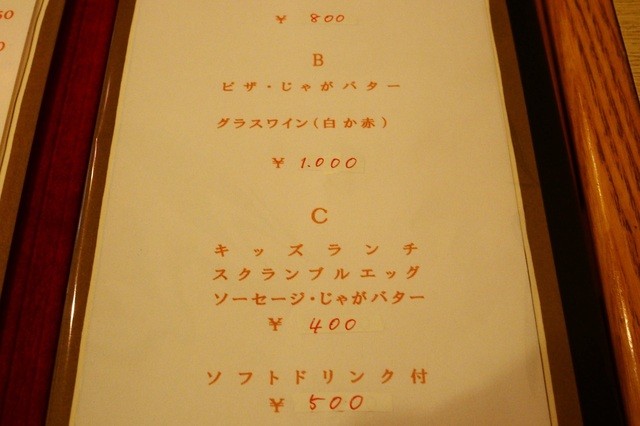 ¥ 800
B
ピザ・じゃがバター
グラスワイン(白か赤)
¥ 1.000
C
キッズランチ
スクランブルエッグ
ソーセージ・じゃがバター
¥ 400
ソフトドリンク付
¥ 500